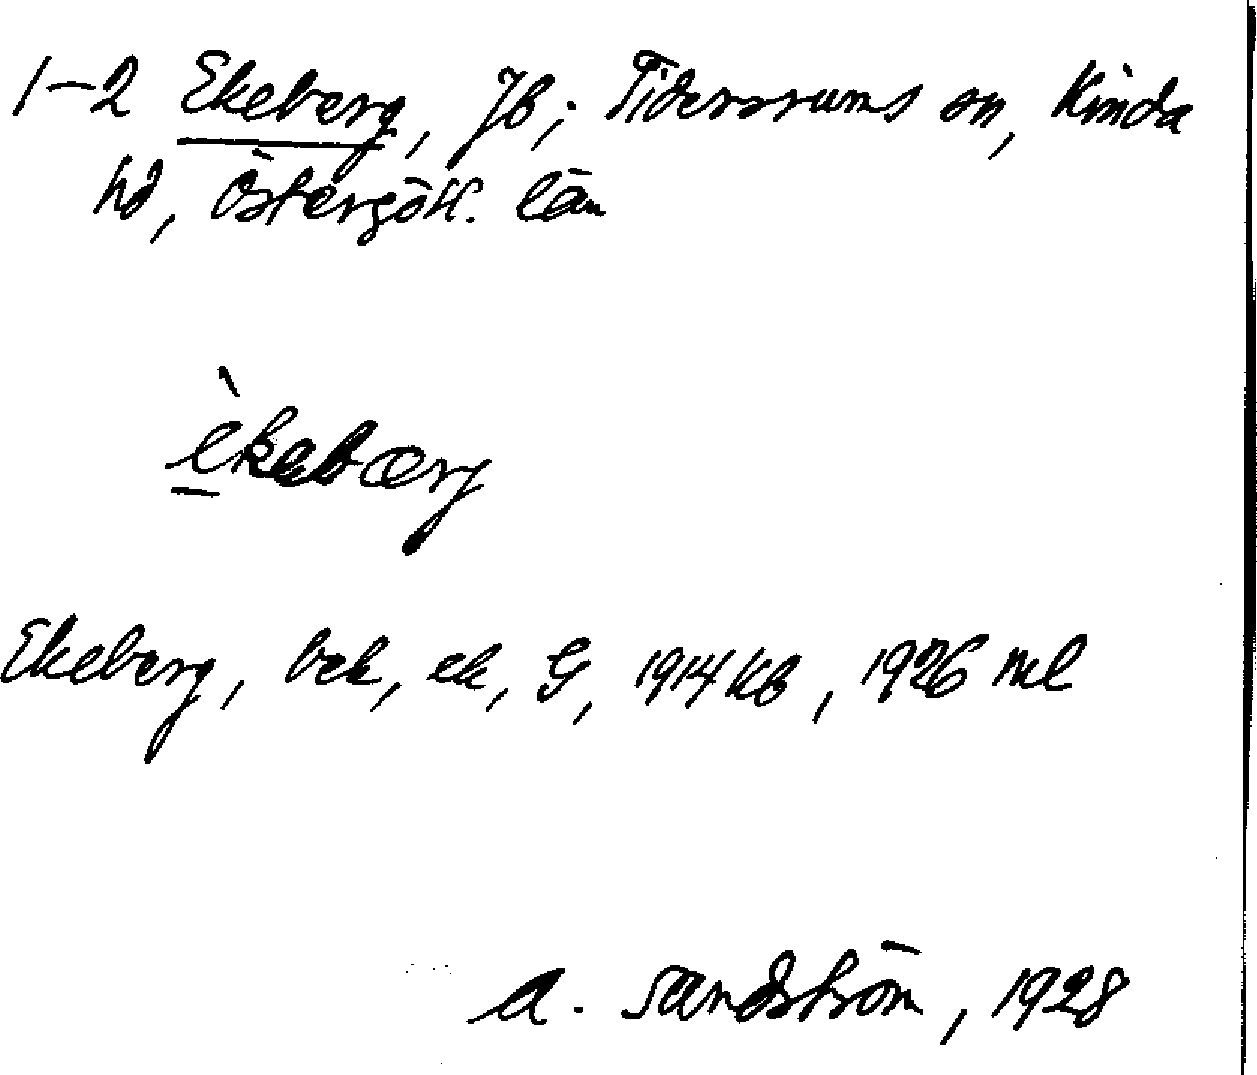 1-2 Ekeberg, Jb; Tidersrums sn, Kinda
hd, Östergötl. län
èkebærj
Ekeberg, bek, ek, G, 1914 kb, 1926 ml
A. Sandström, 1928